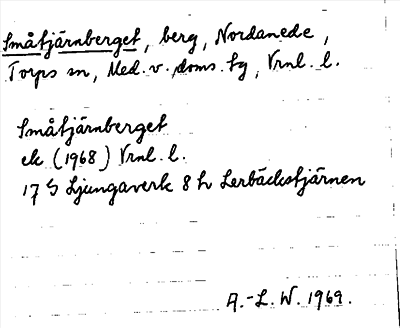 Småtjärnberget, berg, Nordanede,
Torps sn, Med. v. doms. tg, Vrnl. l.
Småtjärnberget
ek (1968) Vrnl. l.
17 G Ljungaverk 8 h Lerbäckstjärnen
A.-L. W. 1969.